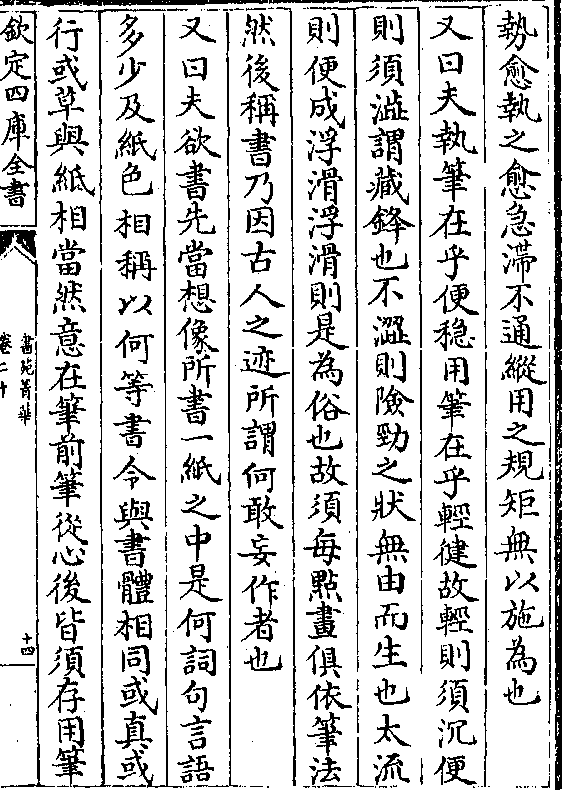 勢愈執之愈急滯不通縱用之規矩無以施為也
又曰夫執筆在乎便穩用筆在乎輕徤故輕則須沉便
則須澁謂藏鋒也不澀則險勁之狀無由而生也太流
則便成浮滑浮滑則是為俗也故須每點畫俱依筆法
然後稱書乃因古人之迹所謂何敢妄作者也
又曰夫欲書先當想像所書一紙之中是何詞句言語
多少及紙色相稱以何等書令與書體相同或真或
行或草與紙相當然意在筆前筆從心後皆須存用筆
欽定四庫全書
書苑菁華
卷二十
十四